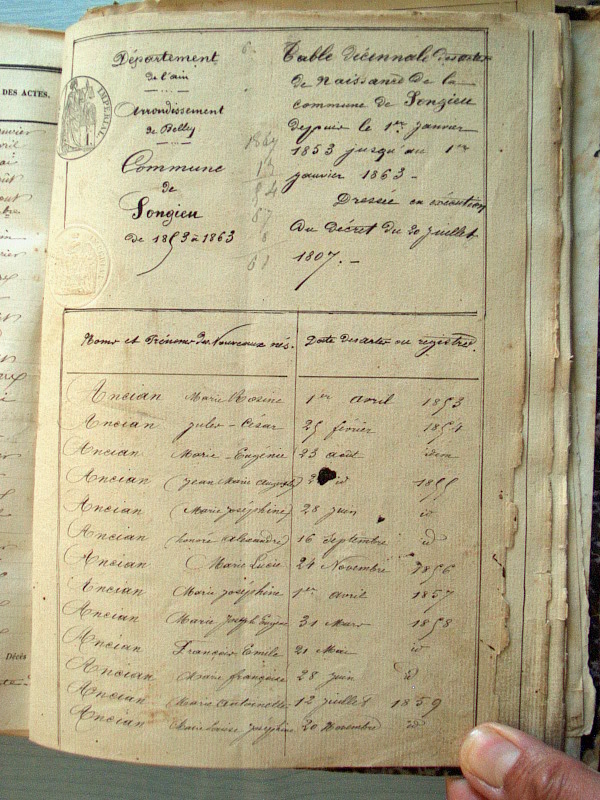 DES ACTES.
Département
de l'ain
Arrondissement
de Belley
Commune
de
Songieu
de 1853 à 1863
IMPERIAL
Table Décennale des actes
de Naissance de la
commune de Songieu
depuis le 1er janvier
1853 jusqu'au 1er
janvier 1863 -
Dressée en exécution
du décret du 20 juillet
1807. -
Noms et Prénoms des Nouveaux nés. Date des actes au registre
Ancian Marie Rosine 1er avril 1853
Ancian jules-César 25 février 1854
Ancian Marie-Eugénie 23 août idem
Ancian (jean Marie auguste) id 1855
Ancian (Marie joséphine) 28 juin id
Ancian (honoré Alexandre) 16 Septembre id
Ancian Marie Lucie 24 Novembre 1856
Ancian Marie joséphine 1er avril 1857
Ancian Marie Joseph Eugène 31 Mars 1858
Ancian François Emile 21 Mai id
Ancian Marie françoise 28 juin id
Ancian Marie Antoinette 12 juillet 1859
Ancian Marie Louise joséphine 20 id
Décès